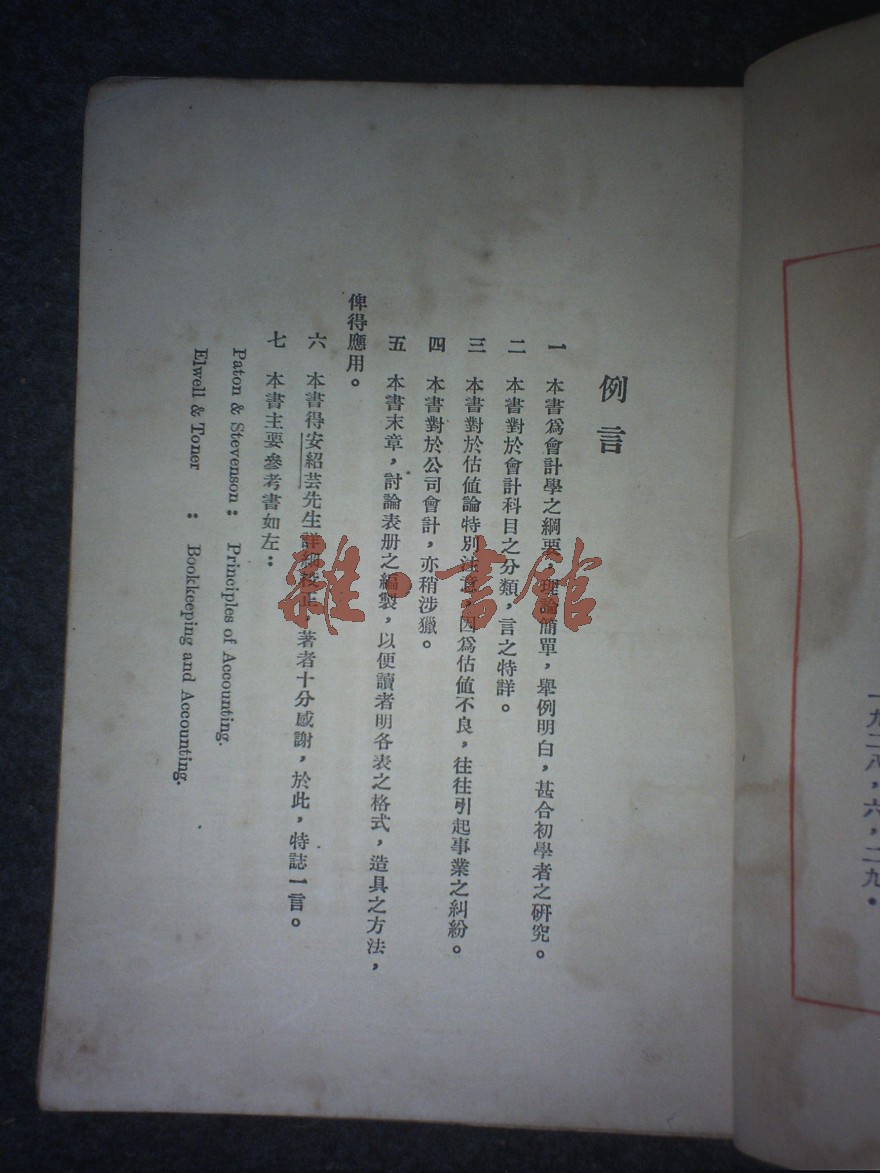 一九二八，六，二九。
例言
一　本書爲會計學之綱要，理論簡單，舉例明白，甚合初學者之研究。
二　本書對於會計科目之分類，言之特詳。
三　本書對於估值論特別注意，因爲估值不良，往往引起事業之糾紛。
四　本書對於公司會計，亦稍涉獵。
五　本書末章，討論表册之編製，以便讀者明各表之格式，造具之方法，
俾得應用。
六　本書得安紹芸先生詳細校正，著者十分感謝，於此，特誌一言。
七　本書主要參考書如左：
Paton & Stevenson： Principles of Accounting.
Elwell & Toner ： Bookkeeping and Accounting.
雜·書館